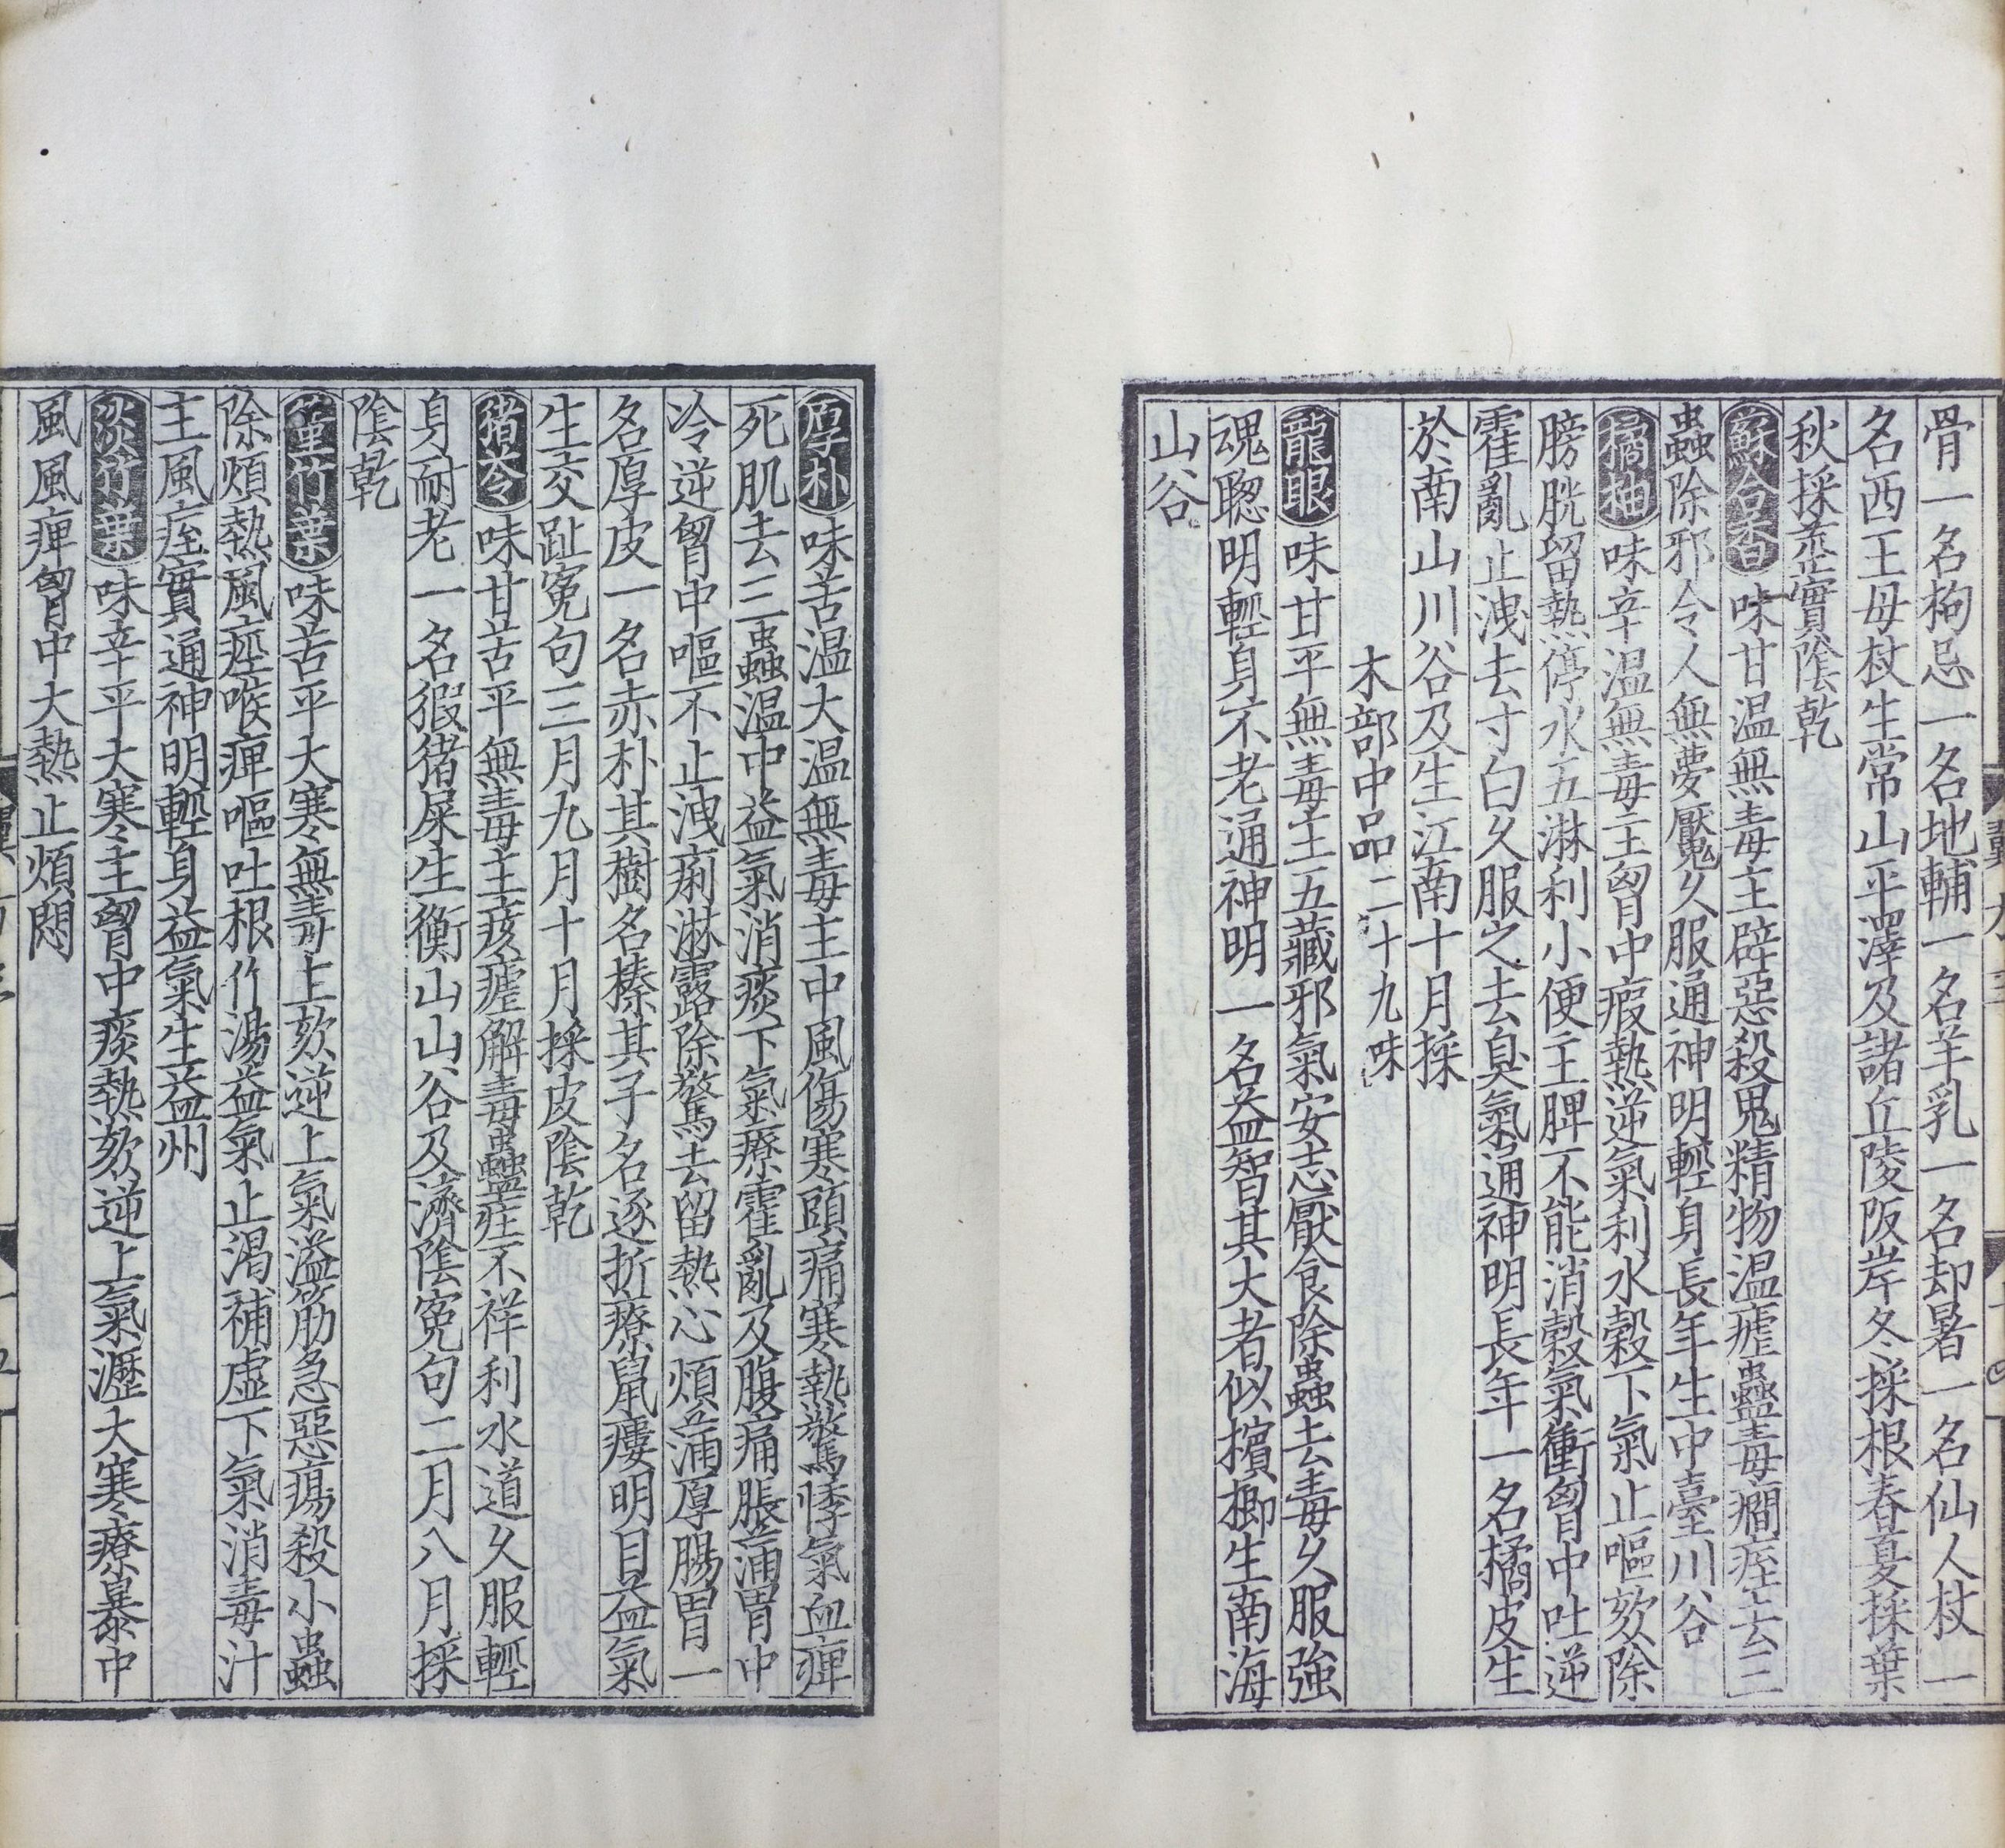 骨一名枸忌一名地輔一名羊乳一名却暑一名仙人杖一
名西王母杖生常山平澤及諸丘陵阪岸冬採根春夏採葉
秋採莖實陰乾
蘇合香味甘温無毒主辟惡殺鬼精物温瘧蠱毒癎痓去三
蟲除邪令人無夢魘久服通神明輕身長年生中臺川谷
橘柚味辛温無毒主胷中瘕熱逆氣利水穀下氣止嘔欬除
膀胱留熱停水五淋利小便主脾不能消穀氣衝胷中吐逆
霍亂止洩去寸白久服之去臭氣通神明長年一名橘皮生
於南山川谷及生江南十月採
木部中品二十九味
龍眼味甘平無毒主五藏邪氣安志厭食除蟲去毒久服強
魂聦明輕身不老通神明一名益智其大者似檳榔生南海
山谷
厚朴味苦温大温無毒主中風傷寒頭痛寒熱驚悸氣血痺
死肌去三蟲温中益氣消痰下氣療霍亂及腹痛脹滿胃中
冷逆胷中嘔不止洩痢淋露除驚去留熱心煩滿厚腸胃一
名厚皮一名赤朴其樹名榛其子名逐折療鼠瘻明目益氣
生交趾寃句三月九月十月採皮陰乾
猪苓味甘苦平無毒主痎瘧解毒蠱疰不祥利水道久服輕
身耐老一名猳猪屎生衡山山谷及濟陰寃句二月八月採
陰乾
菫竹葉味苦平大寒無毒主欬逆上氣溢筋急惡瘍殺小蟲
除煩熱風痙喉痺嘔吐根竹湯益氣止渴補虛下氣消毒汁
主風痓實通神明輕身益氣生益州
淡竹葉味辛平大寒主胷中痰熱欬逆上氣瀝大寒療暴中
風風痺胷中大熱止煩悶